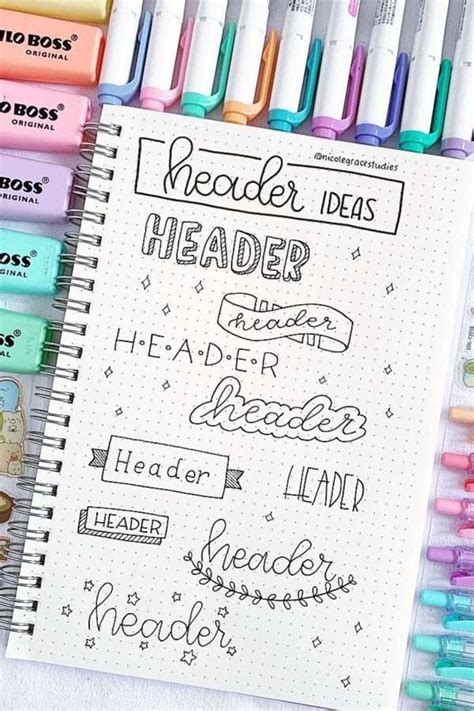 LO BOSS
ORIGINAL
BOSS
ORIGINAL
OSS
GINAL
OSS
INAL
OSS
INAL
@nicolegracestudies
header IDEAS
HEADER
header
H·E·A·D·E·R
header
Header
HEADER
HEADER
header
header